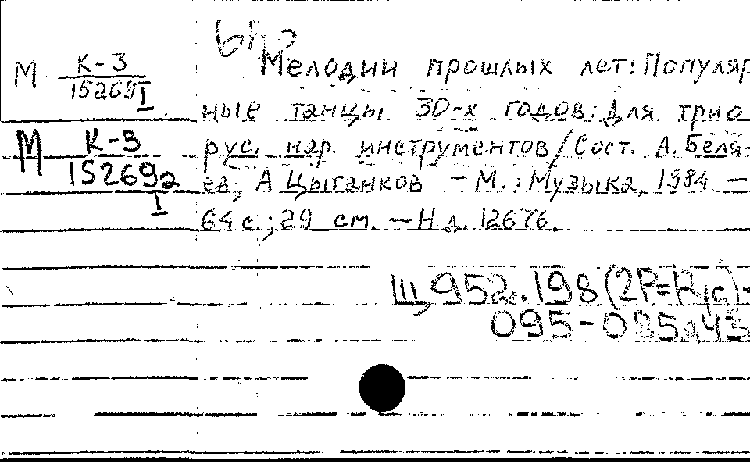 М К-3
15265
I
М К-3
15269а
I
Мелодии прошлых лет: Популяр
ные танцы 30-х годов: Для трио
рус. нар. инструментов / Сост. А. Беля-
ев, А Цыганков - М.: Музыка, 1984 —
64 с.; 29 см. — Н д. 12676.
Ш 952.198 (2Р=Рус)-
095-0